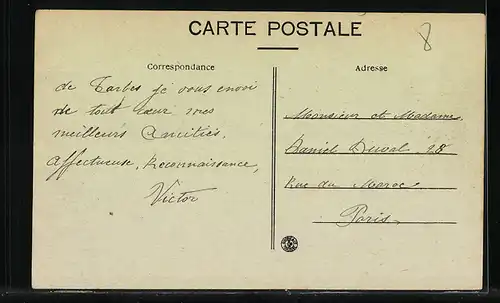 CARTE POSTALE
8
Correspondance
Adresse
de Tarbes je vous envoi
de tout cœur mes
meilleurs Amitiés,
affectueuse, Reconnaissance,
Victor
Monsieur et Madame,
Daniel Duval 28
Rue du Maroc
Paris